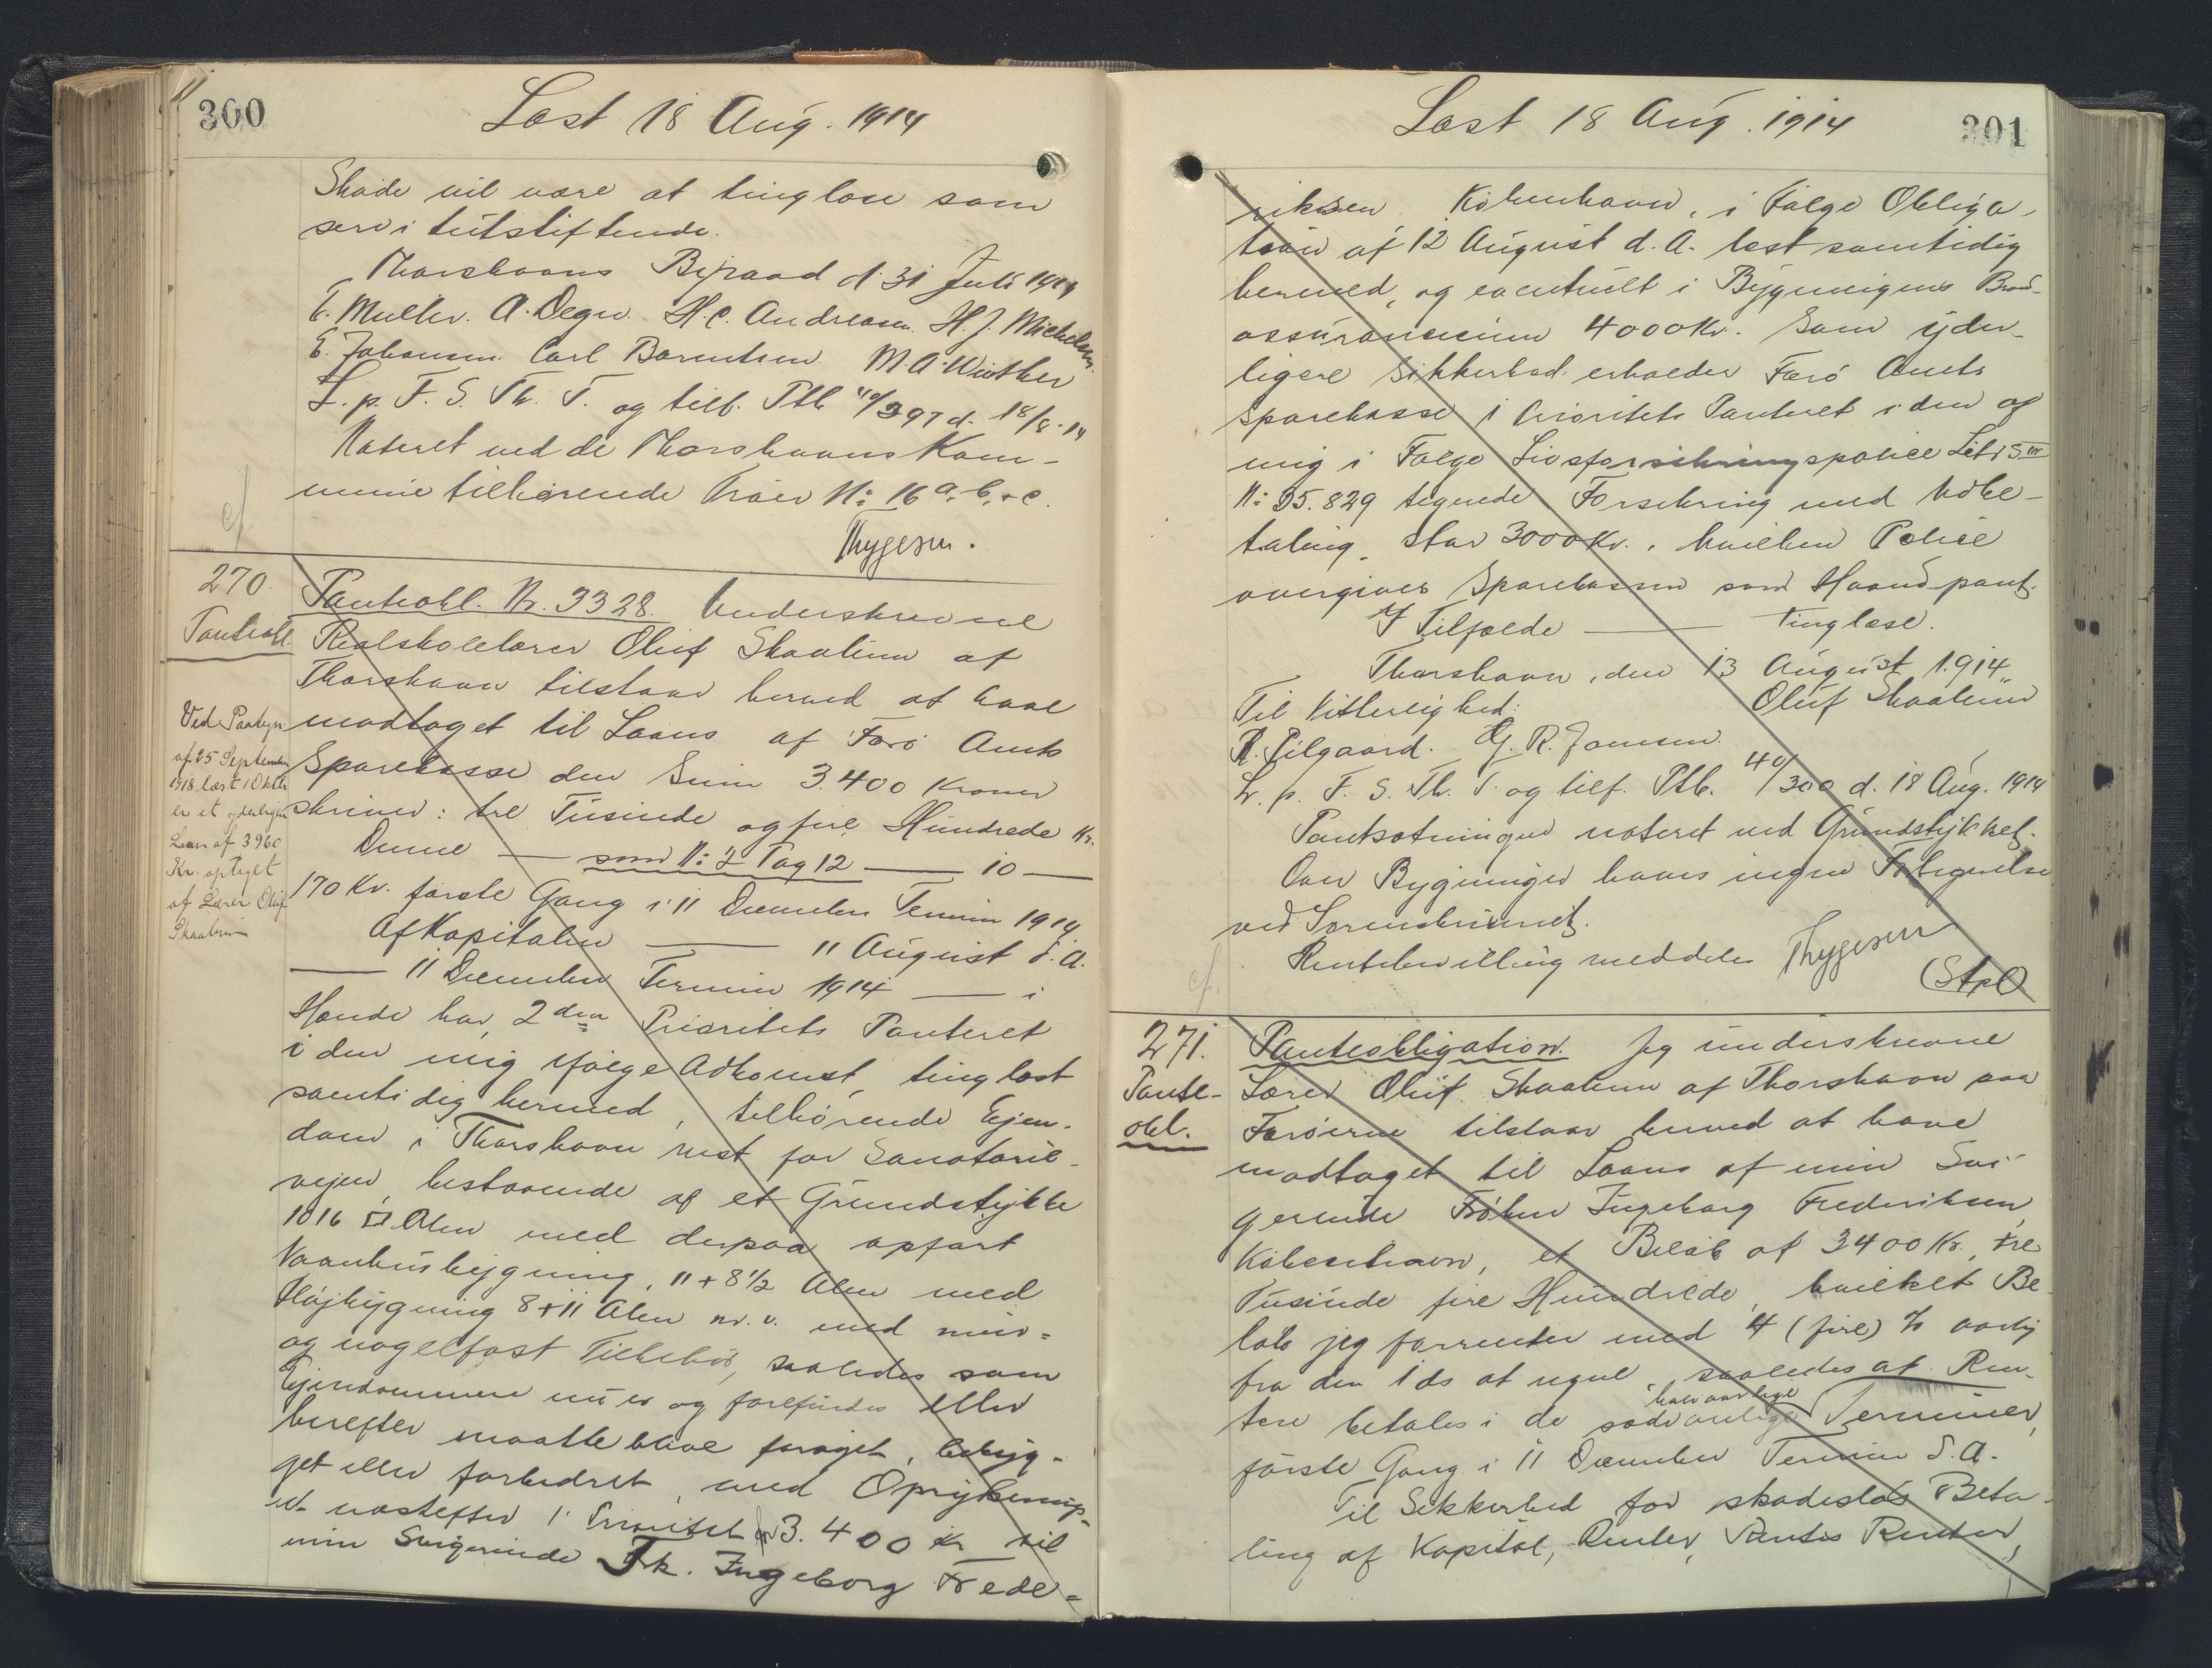 300
Læst 18 Aug. 1914
Skøde vil være at tinglæse som
servitutstiftende.
Thorshavns Byraad d. 31 Juli 1914
E. Müller. A. Degn. H.C. Andreasen. H.J. Michelsen.
E. Johansen. Carl Børentsen. M.A. Winther
L. p. F. S. Th. T. og tilf. Ptb. 40/297 d. 18/8.14
Noteret ved de Thorshavns Kom-
mune tilhørende Trøer N: 16 a, b, + c.
Thygesen.
cf
270.
Panteobl.
Panteobl. Nr. 3328. Underskrevne
Realskolelærer Oluf Skaalum af
Thorshavn tilstaar herved at have
modtaget til Laans af Færø Amts
Sparekasse den Sum 3.400 Kroner
skriver: tre Tusinde og fire Hundrede Kr.
Denne — som N: 2 Pag 12 — 10 —
170 Kr. første Gang i 11 December Termin 1914
Af Kapitalen — 11 August d. A.
— 11 December Termin 1914 — i
Hænde har, 2den Prioritets Panteret
i den mig ifølge Adkomst, tinglæst
samtidig hermed, tilhørende Ejen-
dom i Thorshavn vest for Sanatorie-
vejen, bestaaende af et Grundstykke
1016 □ Alen med derpaa opført
Vaanhusbygning, 11 + 8 1/2 Alen med
Fløjbygning 8 + 11 Alen m.v. med mur-
og nagelfast Tilbehør, saaledes som
Ejendommen nu er og forefindes eller
herefter maatte blive forøget, bebyg-
get eller forbedret, med Oprykningsr-
et næstefter 1' Prioritet for 3.400 Kr til
min Svigerinde Frk. Ingeborg Frede-
Ved Paategn
af 25 September
1918 læst 1 Oktbr
er et yderligere
Laan af 3960
Kr. optaget
af Lærer Oluf
Skaalum
Læst 18 Aug. 1914
301
riksen København, i Følge Obliga-
tion af 12 August d. A. læst samtidig
hermed, og eventuelt i Bygningens Brand-
assurancesum 4000 Kr. Som yder-
ligere Sikkerhed erholder Færø Amts
Sparekasse 1 Prioritets Panteret i den af
mig i Følge Livsforsikringspolice Litr S III
N: 35.829 tegnede Forsikring med Udbe-
taling stor 3000 Kr., hvilken Police
overgives Sparekassen som Haandpant.
I Tilfælde — tinglæse.
Thorshavn, den 13 August 1914
Oluf Skaalum
Til Vitterlighed:
R. Pilgaard. G. R. Jansen.
L. p. F. S. Th. T. og tilf. Ptb. 40/300 d. 18 Aug. 1914
Pantsætningen noteret ved Grundstykket.
Over Bygninger haves ingen Fortegnelse
ved Sorenskriveriet.
Rentebevilling meddeles Thygesen
(Stpl)
cf.
271.
Pante-
obl.
Panteobligation. Jeg underskrevne
Lærer Oluf Skaalum af Thorshavn paa
Færøerne tilstaar herved at have
modtaget til Laans af min Svi-
gerinde Frøken Ingeborg Frederiksen,
København, et Beløb af 3400 Kr., tre
Tusinde fire Hundrede, hvilket Be-
løb jeg forrenter med 4 (fire) % aarlig
fra den 1 ds at regne, saaledes at Ren-
tere betales i de sædvanlige halvaarlige Terminer,
første Gang i 11 December Termin d. A.
Til Sikkerhed for skadesløs Beta-
ling af Kapital, Renter, Rentes Renter,